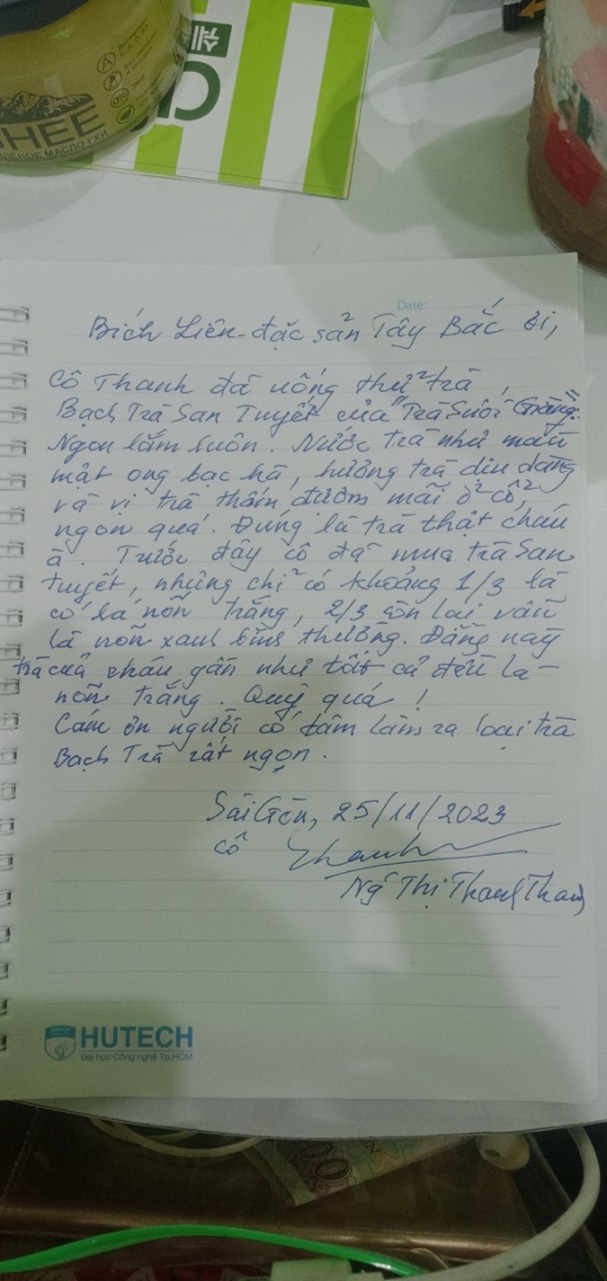 GHEE
МАСЛО ГХИ
Date:
Bích Liên - đặc sản Tây Bắc ơi,
Cô Thanh đã uống thử trà
Bạch Trà San Tuyết của "Trà Suối Giàng".
Ngon lắm luôn. Nước trà như màu
mật ong bạc hà, hương trà dịu dàng
và vị trà thấm đượm mãi ở cổ,
ngon quá. Đúng là trà thật cháu
ạ. Trước đây cô đã mua trà San
tuyết, nhưng chỉ có khoảng 1/3 là
có lá nõn trắng, 2/3 còn lại vẫn
là nõn xanh bình thường. Đằng này
trà của cháu gần như tất cả đều là
nõn trắng. Quý quá!
Cám ơn người có tâm làm ra loại trà
Bạch Trà rất ngon.
Sài Gòn, 25/11/2023
Cô Thanh
Ngô Thị Thanh Thanh
HUTECH
Đại học Công nghệ Tp.HCM